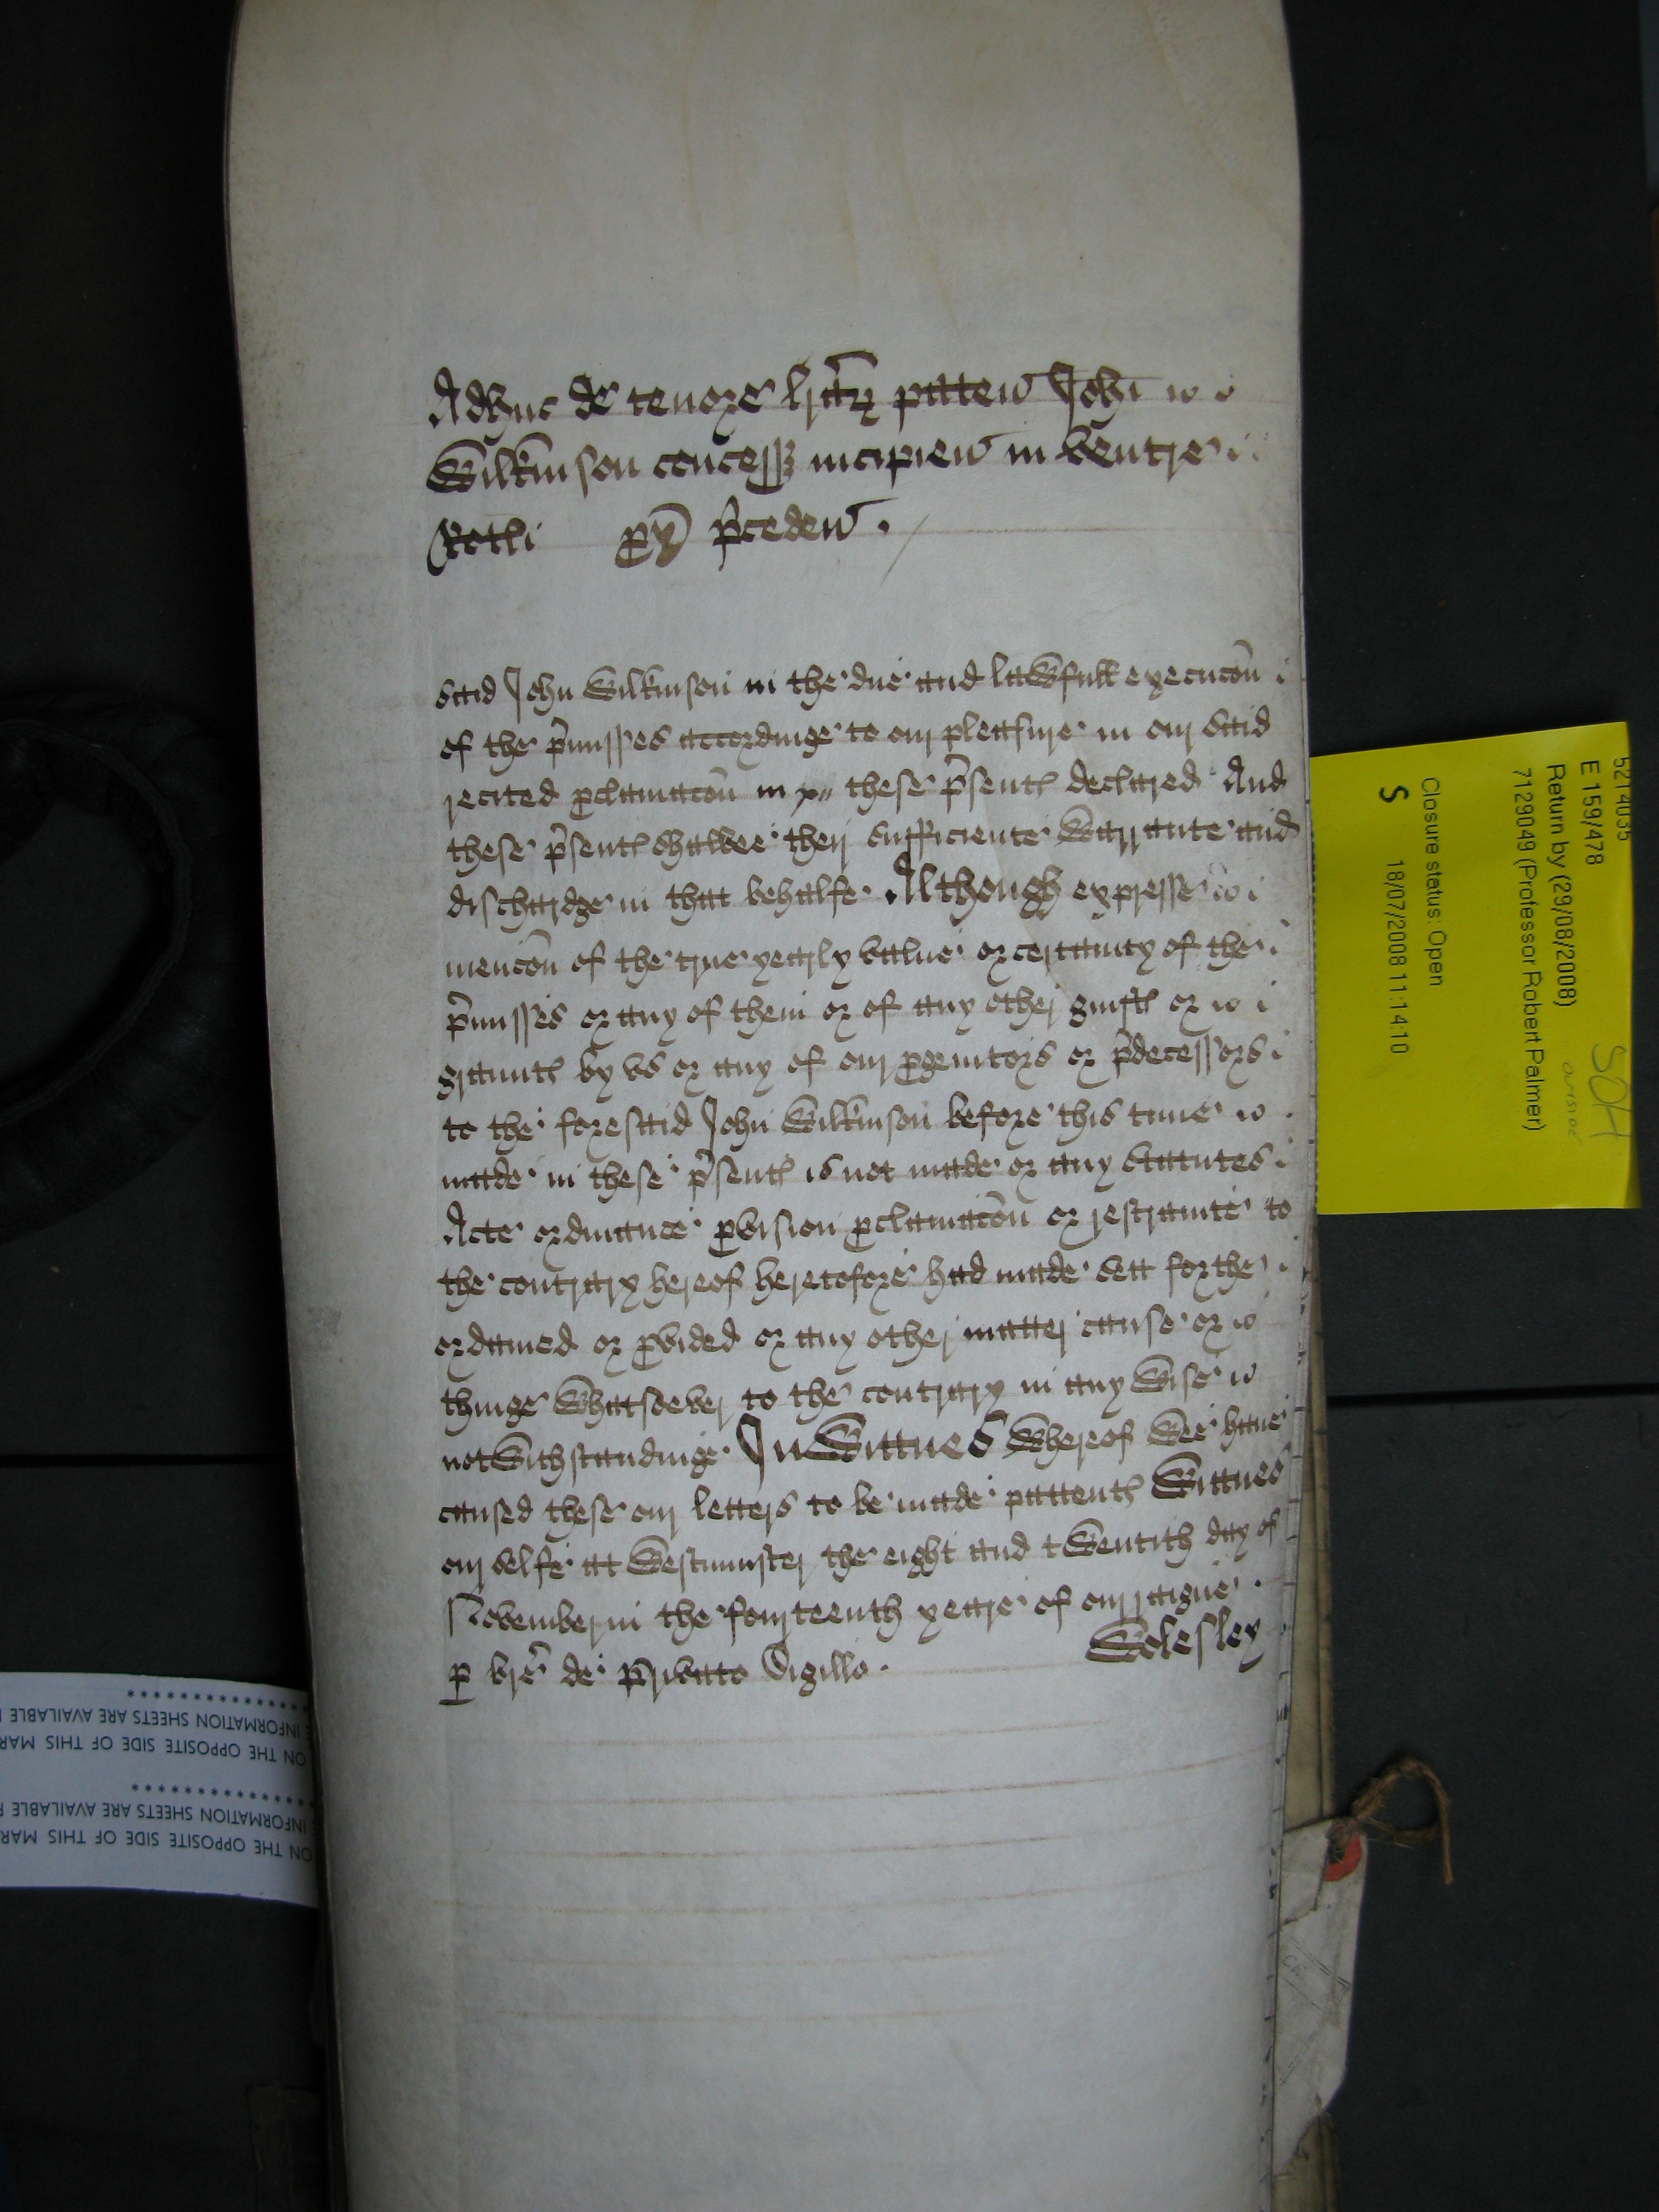 Adhuc de tenore lrãrz patten Johi
Wilkinson concess incipien in ventre
Rotli pxj p̃ceden.
said John Wilkinson in the due and lawfull execucõn
of the p̃misses accordinge to our pleasure in our said
recited pclamacõn in these p̃sents declared And
these p̃sents shalbee their sufficiente warrante and
dischardge in that behalfe. Although expresse
mencõn of the true yearly value or certainty of the
p̃misses or any of them or of any other guifts or
graunts by vs or any of our pgenitors or p̃decessors
to the foresaid John Wilkinson before this time
made in these p̃sents is not made or any Statutes
Acte ordinance pvision pclamacõn or restrainte to
the contrary hereof heretofore had made sett forthe
ordained or pvided or any other matter cause or
thinge whatsoever to the contrary in any wise
notwithstandinge In Wittnes whereof wee haue
caused these our letters to be made pattents Wittnes
our selfe at Westminster the eight and twentith day of
November in the fourteenth yeare of our raigne
p br̃e de privato Sigillo. Wolesley
5214035
E 159/478
Return by (29/08/2008)
7129049 (Professor Robert Palmer)
Closure status: Open
S 18/07/2008 11:14:10
SDH
outside
ON THE OPPOSITE SIDE OF THIS MAR
INFORMATION SHEETS ARE AVAILABLE
************
ON THE OPPOSITE SIDE OF THIS MAR
INFORMATION SHEETS ARE AVAILABLE
************